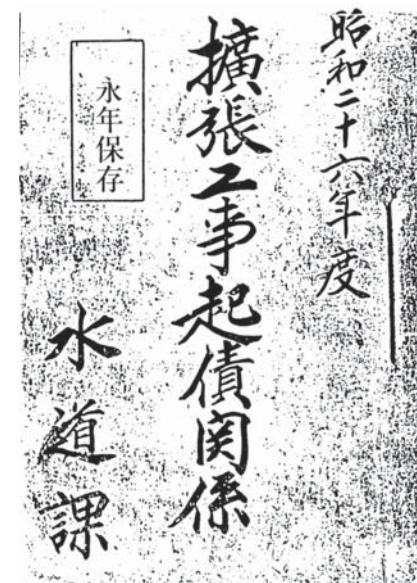 昭和二十六年度
擴張工事起債関係
永年保存
水道課